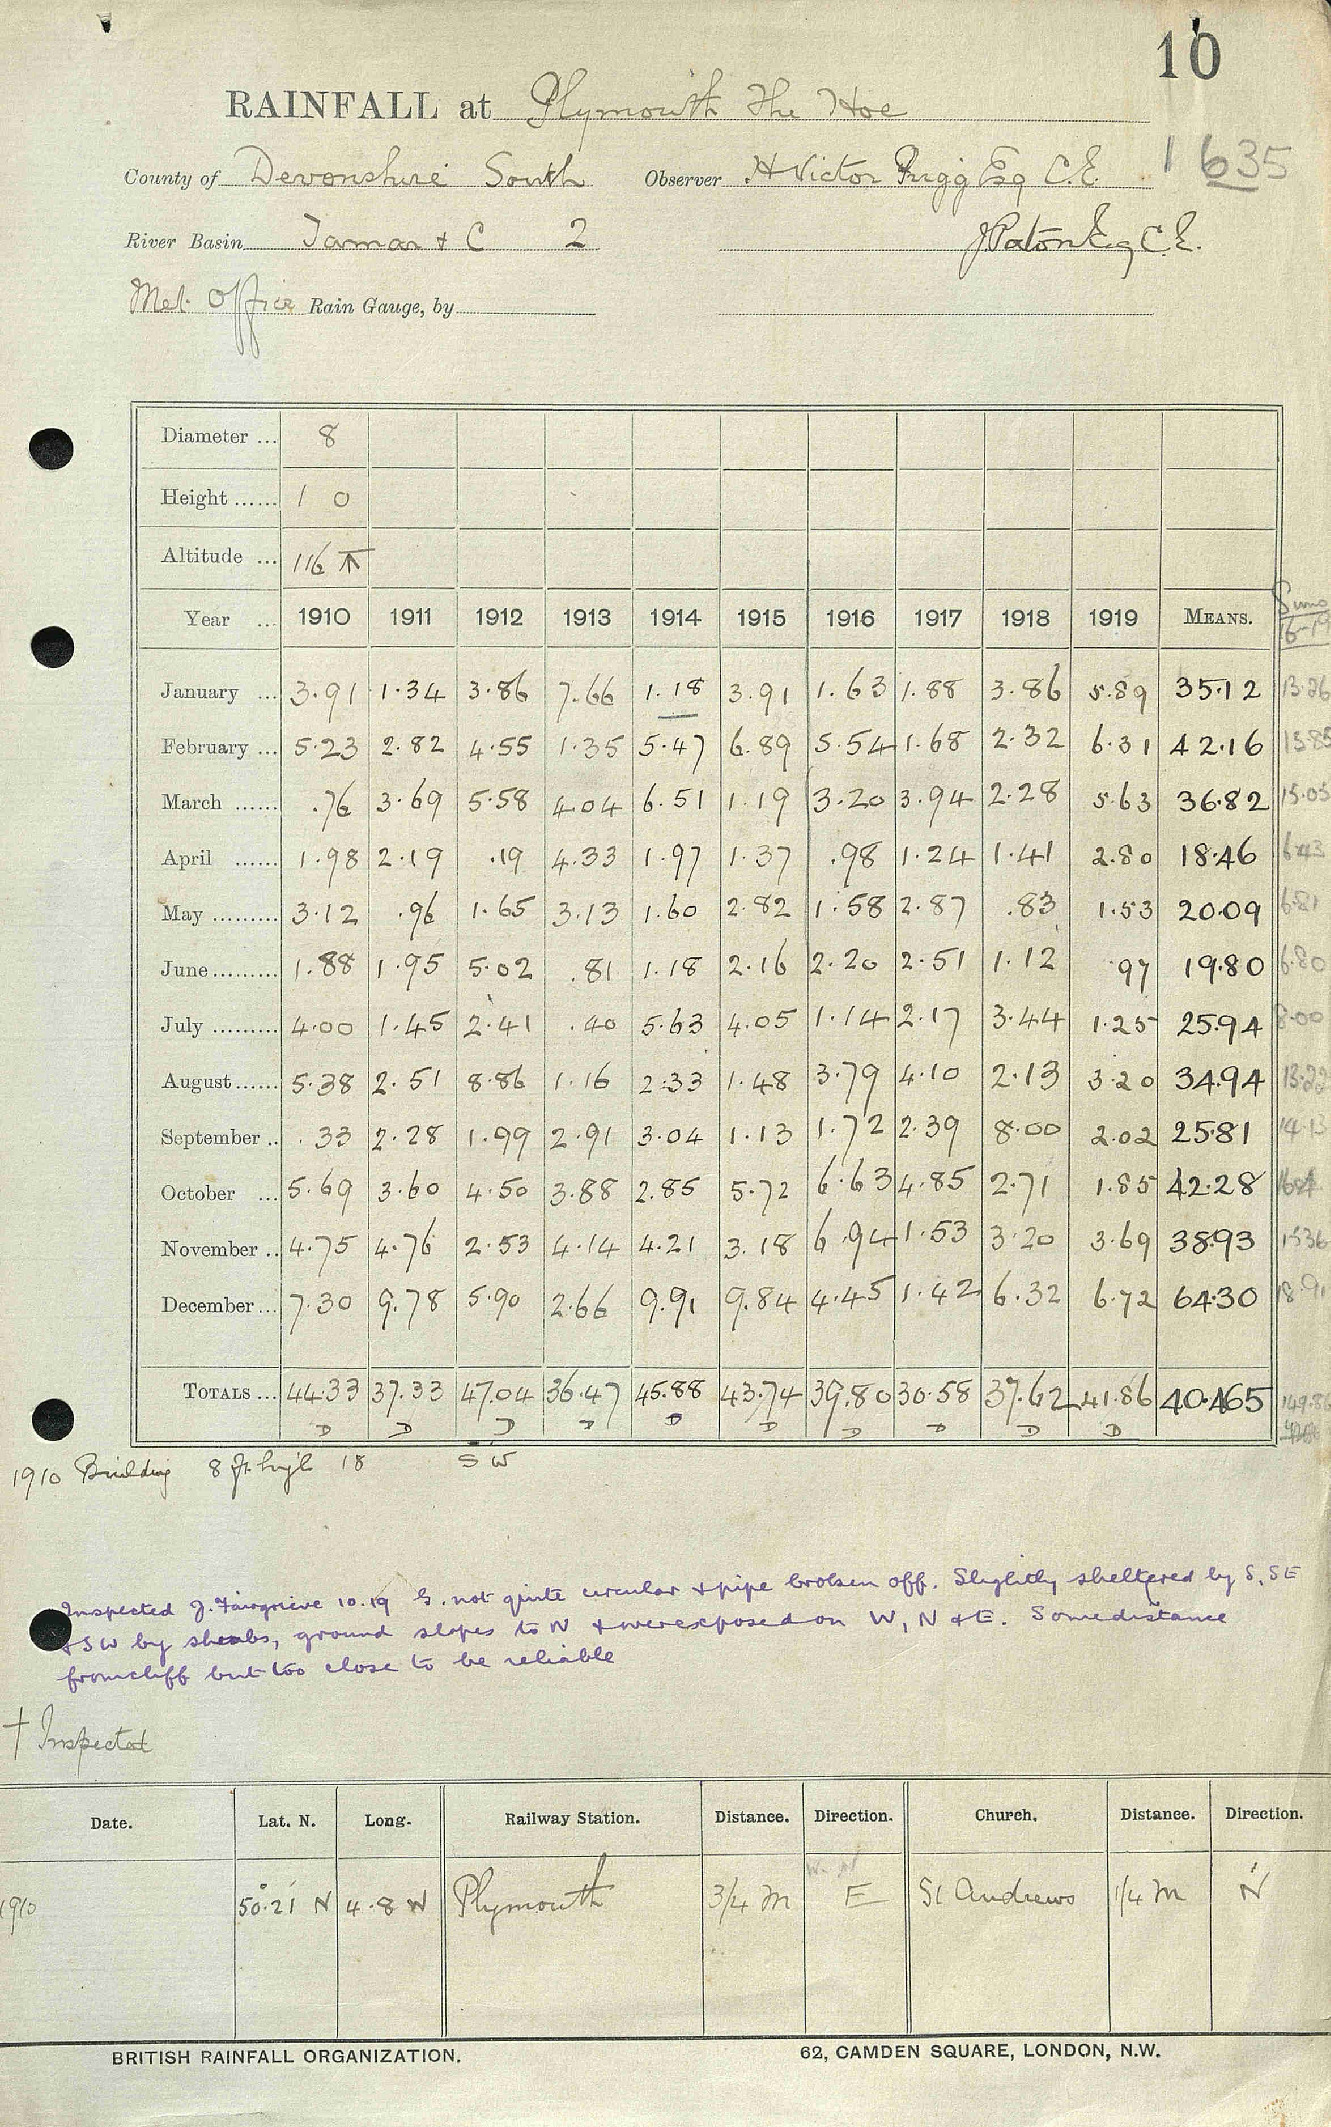 10
RAINFALL at Plymouth The Hoe
1635
County of Devonshire South Observer H Victor Prigg Esq C.E.
River Basin Tamar & C 2 J Paton Esq C.E.
Met. Office Rain Gauge, by
Diameter ... 8
Height ...... 1 0
Altitude ... 116
Year ... 1910 1911 1912 1913 1914 1915 1916 1917 1918 1919 MEANS. Sums 16-19
January ... 3.91 1.34 3.86 7.66 1.18 3.91 1.63 1.88 3.86 5.89 35.12 13.26
February ... 5.23 2.82 4.55 1.35 5.47 6.89 5.54 1.68 2.32 6.31 42.16 15.85
March ...... .76 3.69 5.58 4.04 6.51 1.19 3.20 3.94 2.28 5.63 36.82 15.05
April ...... 1.98 2.19 .19 4.33 1.97 1.37 .98 1.24 1.41 2.80 18.46 6.43
May ......... 3.12 .96 1.65 3.13 1.60 2.82 1.58 2.87 .83 1.53 20.09 6.81
June ......... 1.88 1.95 5.02 .81 1.18 2.16 2.20 2.51 1.12 .97 19.80 6.80
July ......... 4.00 1.45 2.41 .40 5.63 4.05 1.14 2.17 3.44 1.25 25.94 8.00
August ...... 5.38 2.51 8.86 1.16 2.33 1.48 3.79 4.10 2.13 3.20 34.94 13.22
September .. .33 2.28 1.99 2.91 3.04 1.13 1.72 2.39 8.00 2.02 25.81 14.13
October ... 5.69 3.60 4.50 3.88 2.85 5.72 6.63 4.85 2.71 1.85 42.28
November .. 4.75 4.76 2.53 4.14 4.21 3.18 6.94 1.53 3.20 3.69 38.93 15.36
December ... 7.30 9.78 5.90 2.66 9.91 9.84 4.45 1.42 6.32 6.72 64.30 18.91
TOTALS ... 44.33 37.33 47.04 36.47 45.88 43.74 39.80 30.58 37.62 41.86 40.465 149.86
D D D D D D D D D D
1910 Building 8 ft high 18 SW
Inspected J. Fairgrieve 10.19 G. not quite circular & pipe broken off. Slightly sheltered by S, SE
& SW by shrubs, ground slopes to N & overexposed on W, N & E. Some distance
from cliff but too close to be reliable
† Inspected
Date. Lat. N. Long. Railway Station. Distance. Direction. Church. Distance. Direction.
1910 50°.21' N 4.8 W Plymouth 3/4 m E St Andrews 1/4 m N
BRITISH RAINFALL ORGANIZATION. 62, CAMDEN SQUARE, LONDON, N.W.